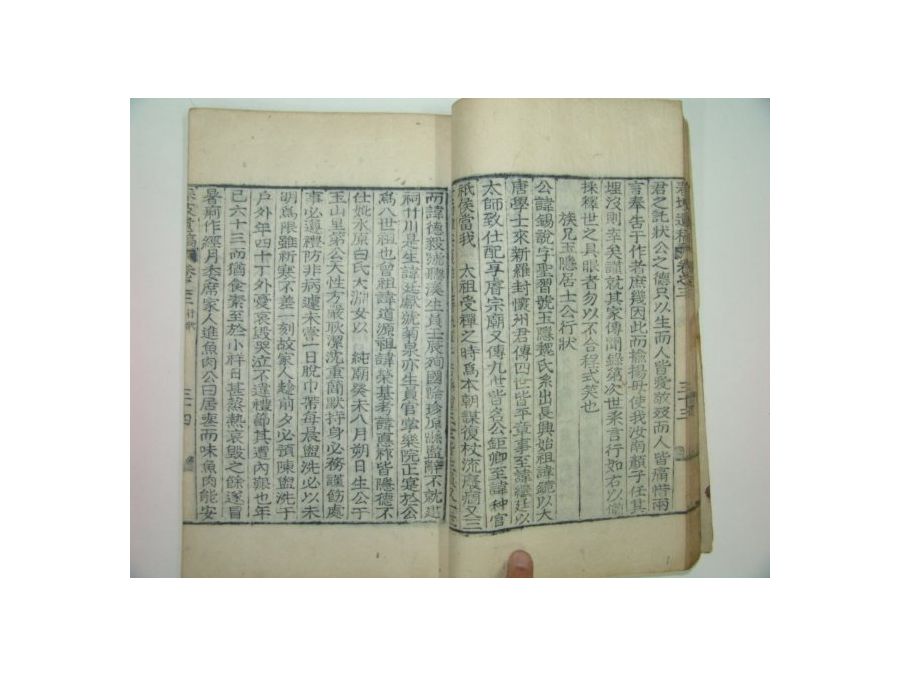 遺稿 卷之三 三十三
君之託狀公之德只以生而人皆愛敬歿而人皆痛惜兩
言奉告于作者庶幾因此而揄揚毋使我汝南顏子任其
埋沒則幸矣謹就其家傳聞錄須次世系言行如右以備
採釋世之具眼者勿以不合程式笑也
族兄玉隱居士公行狀
公諱錫說字聖習號玉隱魏氏系出長興始祖諱鏡以大
唐學士來新羅封懷州君傳四世皆平章事至諱繼廷以
太師致仕配享睿宗廟又傳九世皆名公鉅卿至諱种官
祇侯當我 太祖受禪之時爲本朝謀復杖流 又三
而諱德毅號聽溪生員壬辰殉國除珍原縣監辭不就
祠廿川是生諱廷獻號菊泉亦生員官掌樂院正寔於公
爲八世祖也曾祖諱道源祖諱榮基考諱直祿皆隱德不
仕妣水原白氏大淵女以 純廟癸未八月朔日生公于
玉山里第公天性方嚴耿潔沈重簡默持身必務謹飭處
事必遵禮防非病遽未嘗一日脫巾帶每晨盥洗必以未
明爲限雖祈寒不差一刻故家人趁前夕必預陳盥洗于
戶外年四十丁外憂哀毀哭泣不違禮節其遭內艱也年
已六十三而猶食素至於小祥日甚蒸熱哀毀之餘遂冒
暑痢作經月委席家人進魚肉公曰居喪而味魚肉能安
遺稿 卷之三 行狀 三十四